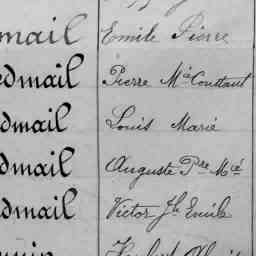 mail Emile Pierre
dmail Pierre Mie Constant
dmail Louis Marie
dmail Auguste Pre Mié
dmail Victor Jh Emile